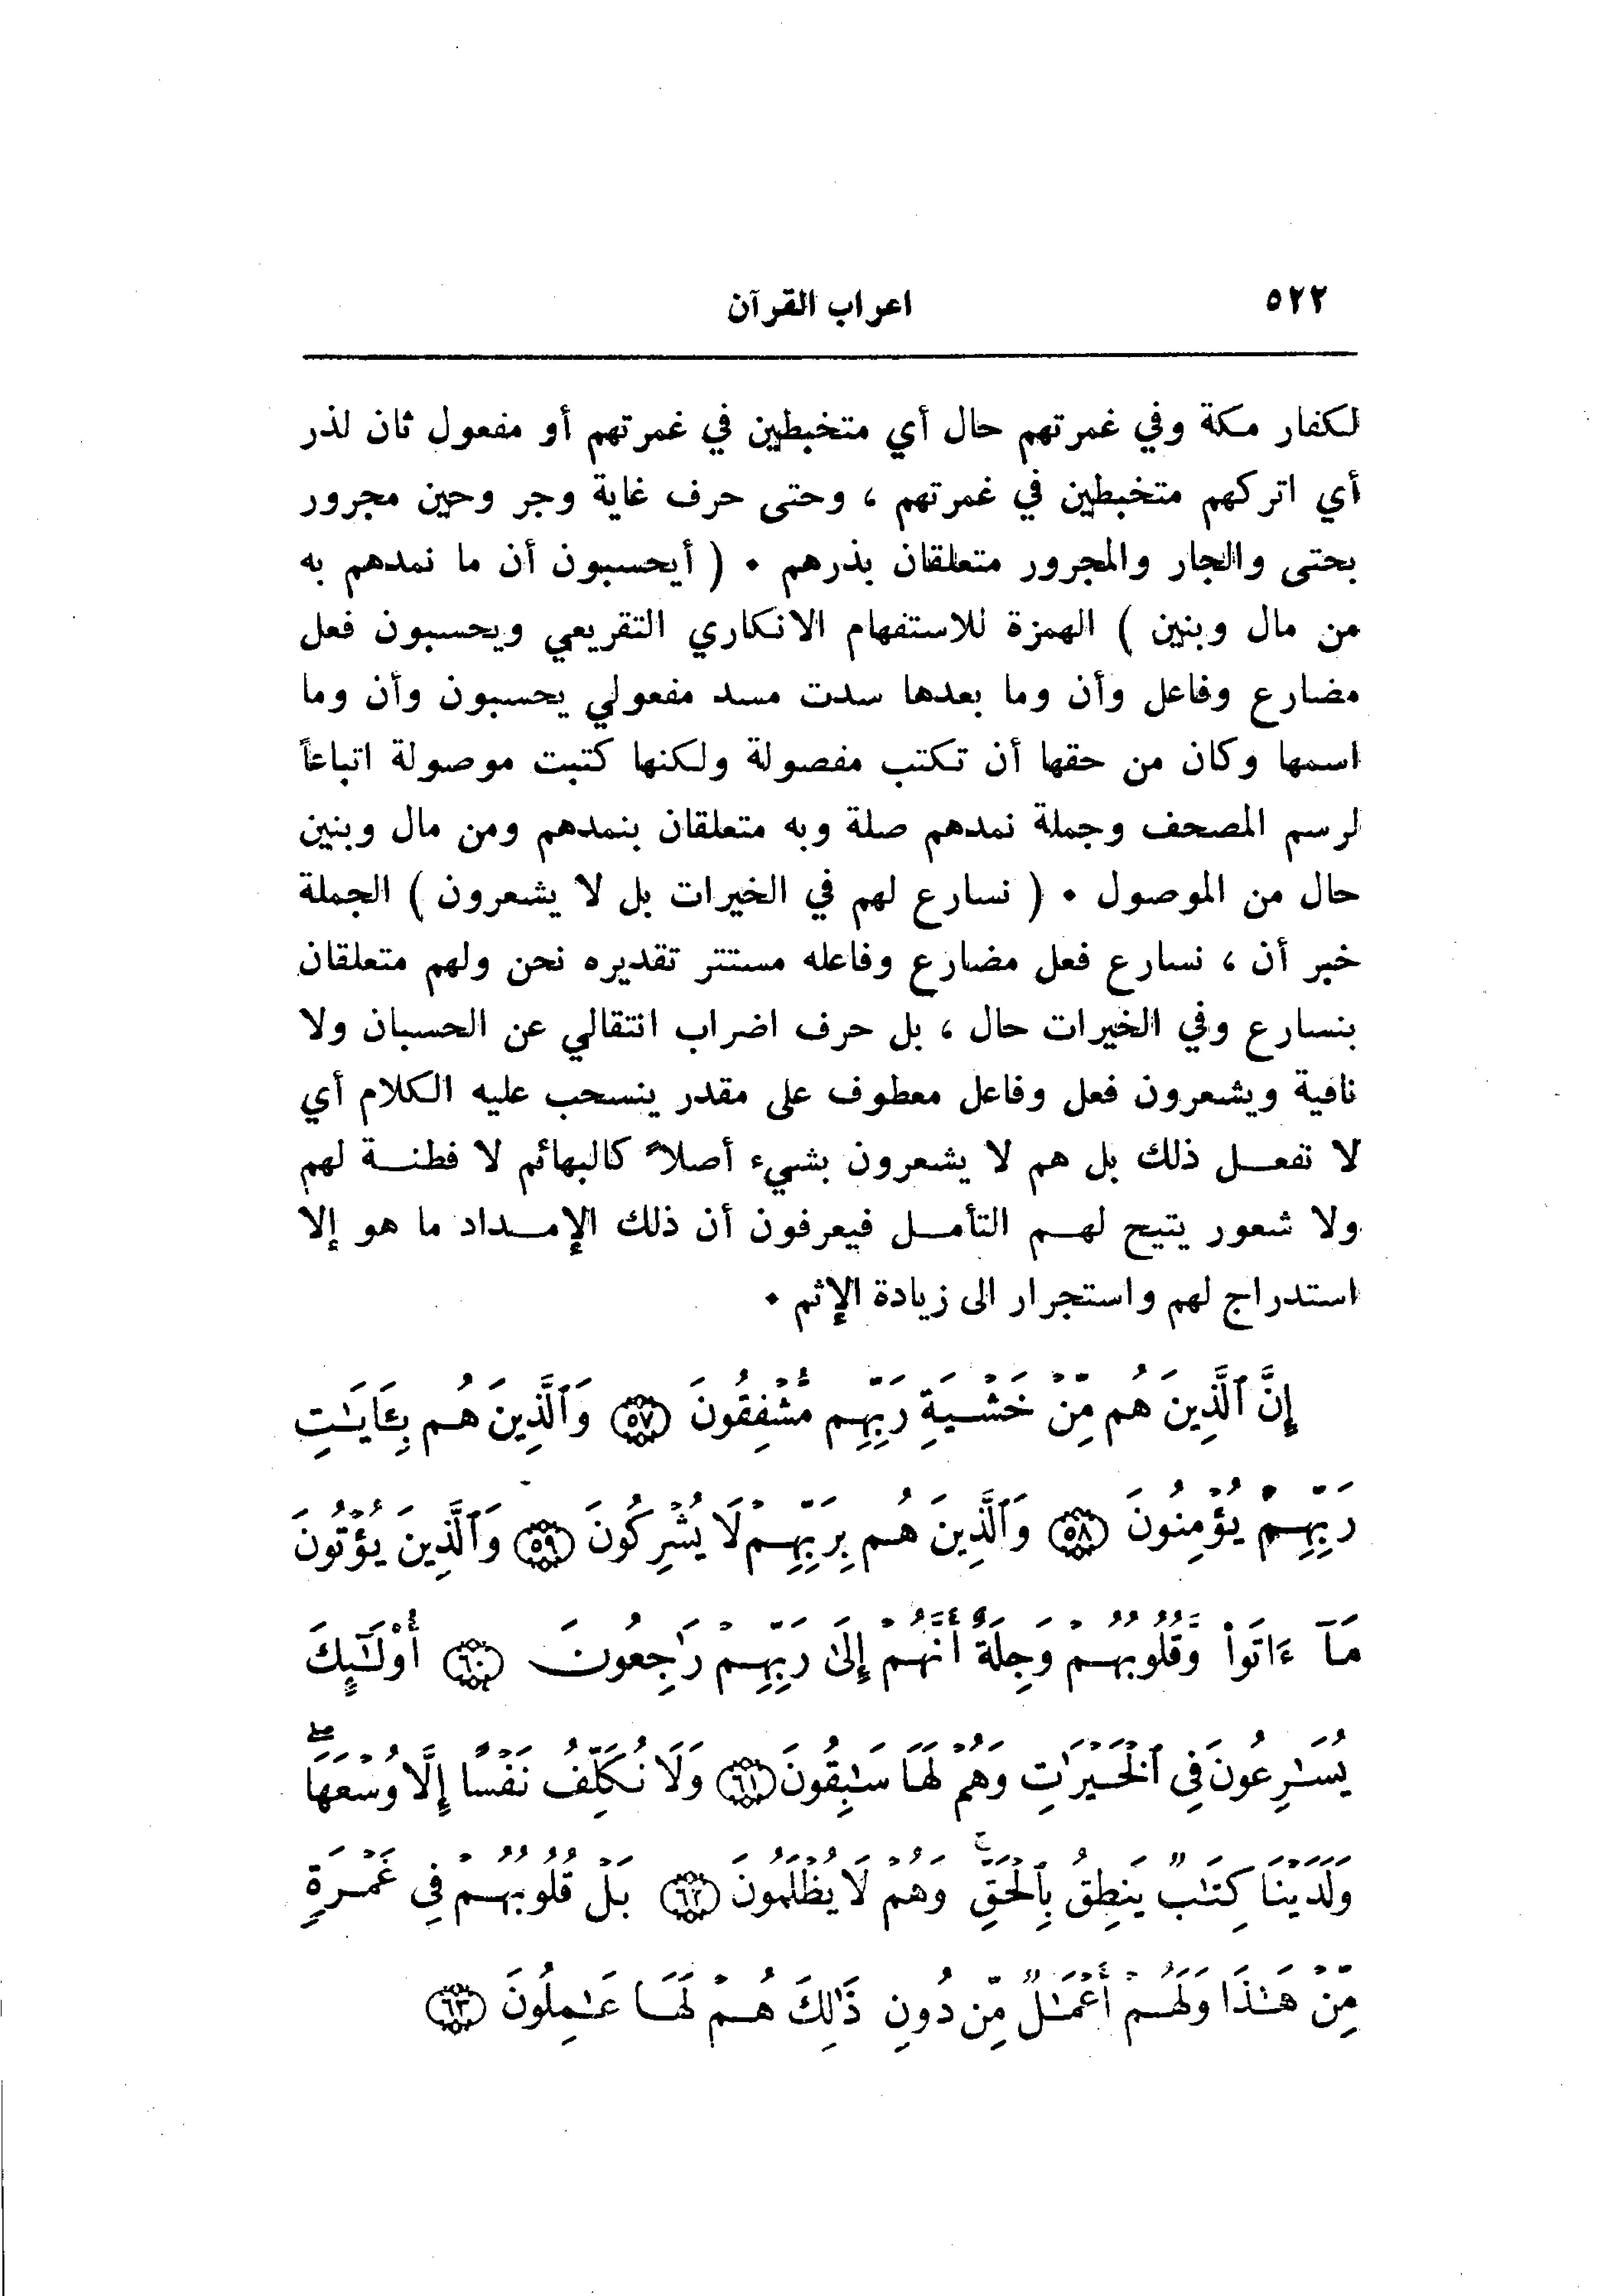 ٥٢٢ اعراب القرآن
لكفار مكة وفي غمرتهم حال أي متخبطين في غمرتهم أو مفعول ثان لذر
أي اتركهم متخبطين في غمرتهم ، وحتى حرف غاية وجر وحين مجرور
بحتى والجار والمجرور متعلقان بذرهم • ( أيحسبون أن ما نمدهم به
من مال وبنين ) الهمزة للاستفهام الانكاري التقريعي ويحسبون فعل
مضارع وفاعل وأن وما بعدها سدت مسد مفعولي يحسبون وأن وما
اسمها وكان من حقها أن تكتب مفصولة ولكنها كتبت موصولة اتباعاً
لرسم المصحف وجملة نمدهم صلة وبه متعلقان بنمدهم ومن مال وبنين
حال من الموصول • ( نسارع لهم في الخيرات بل لا يشعرون ) الجملة
خبر أن ، نسارع فعل مضارع وفاعله مستتر تقديره نحن ولهم متعلقان
بنسارع وفي الخيرات حال ، بل حرف اضراب انتقالي عن الحسبان ولا
نافية ويشعرون فعل وفاعل معطوف على مقدر ينسحب عليه الكلام أي
لا تفعل ذلك بل هم لا يشعرون بشيء أصلاً كالبهائم لا فطنة لهم
ولا شعور يتيح لهم التأمل فيعرفون أن ذلك الإمداد ما هو إلا
استدراج لهم واستجرار الى زيادة الإثم •
إِنَّ ٱلَّذِينَ هُم مِّنْ خَشْيَةِ رَبِّهِم مُّشْفِقُونَ ﴿٥٧﴾ وَٱلَّذِينَ هُم بِـَٔايَـٰتِ
رَبِّهِمْ يُؤْمِنُونَ ﴿٥٨﴾ وَٱلَّذِينَ هُم بِرَبِّهِمْ لَا يُشْرِكُونَ ﴿٥٩﴾ وَٱلَّذِينَ يُؤْتُونَ
مَآ ءَاتَوا۟ وَّقُلُوبُهُمْ وَجِلَةٌ أَنَّهُمْ إِلَىٰ رَبِّهِمْ رَٰجِعُونَ ﴿٦٠﴾ أُو۟لَـٰٓئِكَ
يُسَـٰرِعُونَ فِى ٱلْخَيْرَٰتِ وَهُمْ لَهَا سَـٰبِقُونَ ﴿٦١﴾ وَلَا نُكَلِّفُ نَفْسًا إِلَّا وُسْعَهَا ۖ
وَلَدَيْنَا كِتَـٰبٌ يَنطِقُ بِٱلْحَقِّ ۚ وَهُمْ لَا يُظْلَمُونَ ﴿٦٢﴾ بَلْ قُلُوبُهُمْ فِى غَمْرَةٍ
مِّنْ هَـٰذَا وَلَهُمْ أَعْمَـٰلٌ مِّن دُونِ ذَٰلِكَ هُمْ لَهَا عَـٰمِلُونَ ﴿٦٣﴾